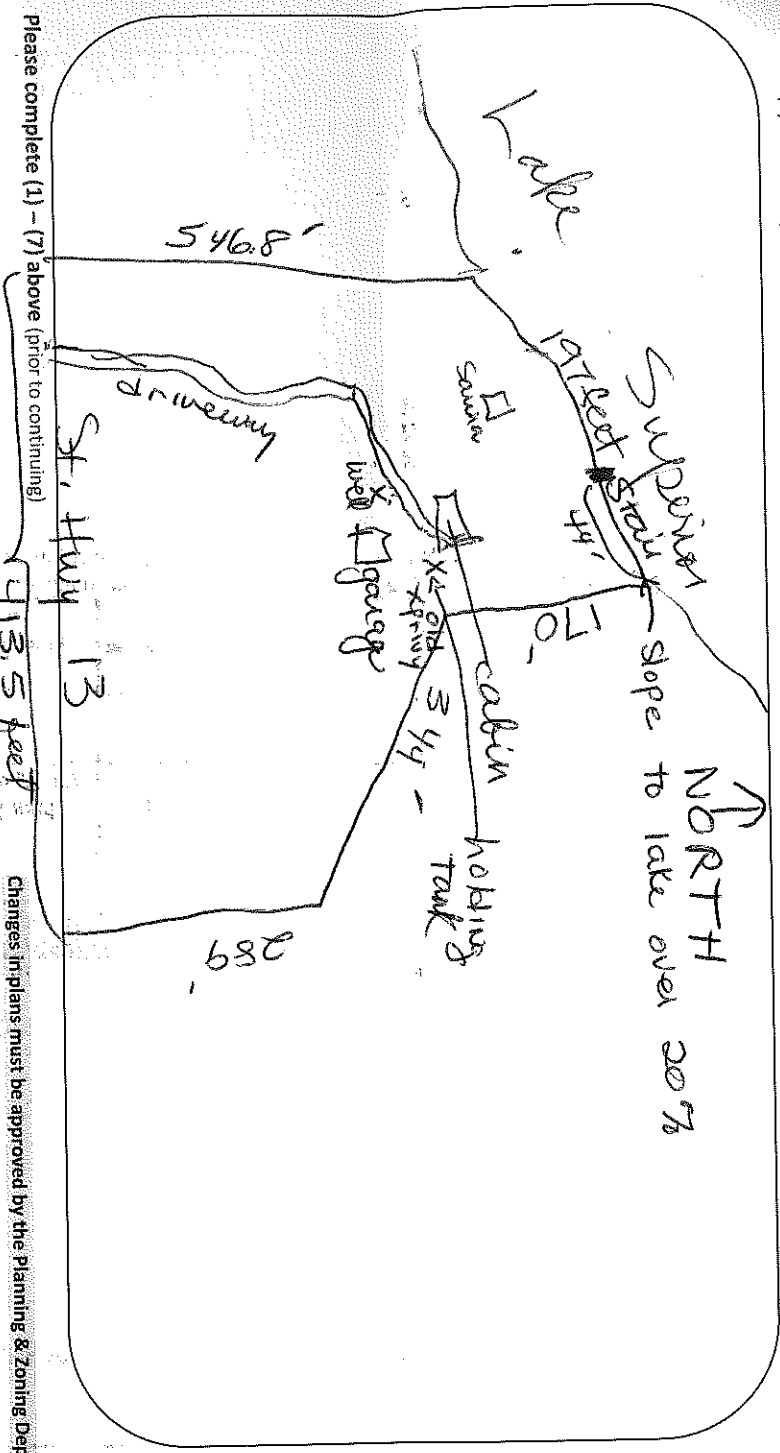 NORTH
Lake Superior
slope to lake over 20%
197 feet
stair
44'
70'
sauna
cabin
holding
tank
old
privy
344'
well
garage
546.8'
driveway
289'
St. Hwy 13
413.5 feet
Please complete (1) – (7) above (prior to continuing)
Changes in plans must be approved by the Planning & Zoning Dep